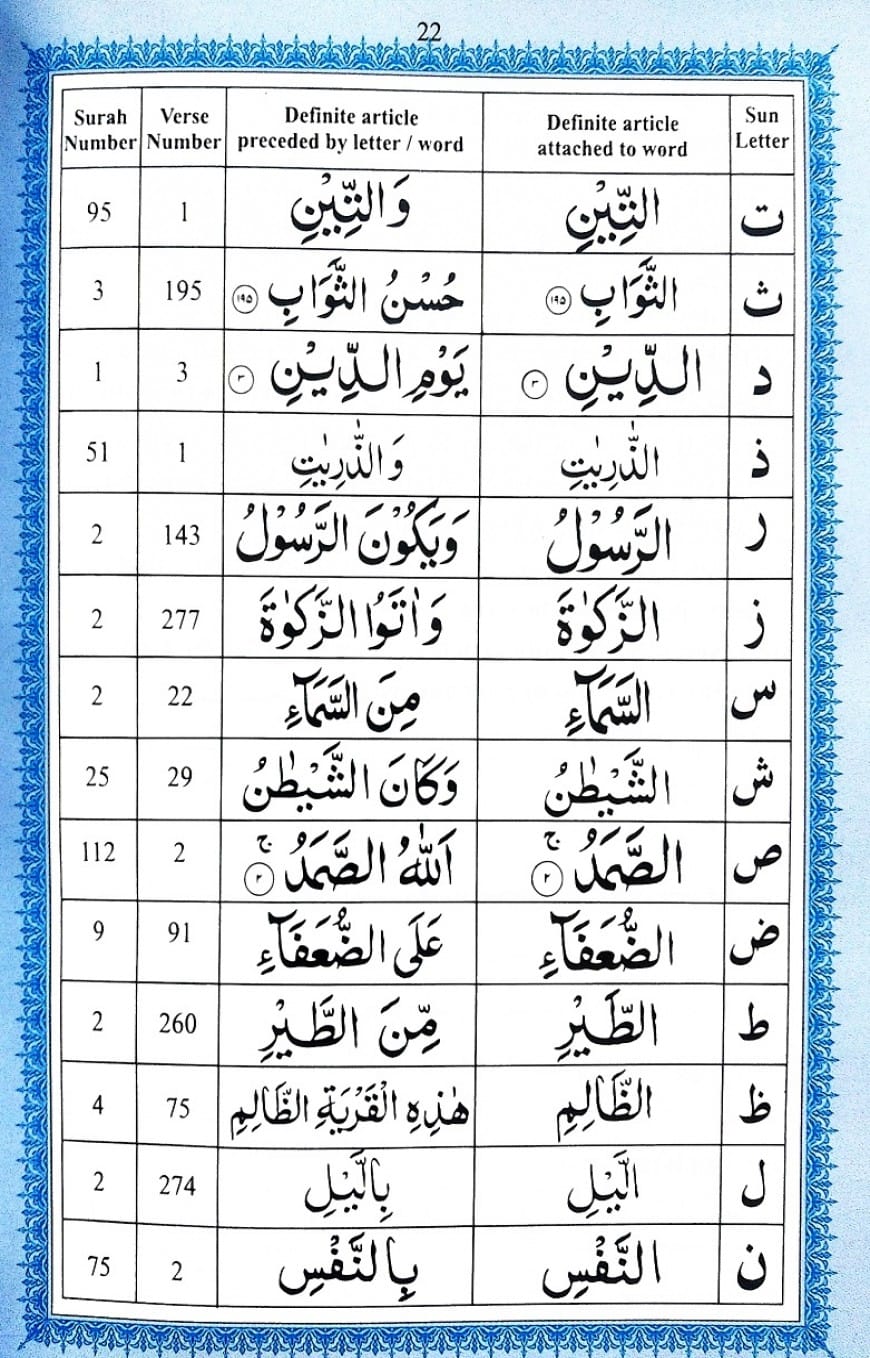 22
Surah Number | Verse Number | Definite article preceded by letter / word | Definite article attached to word | Sun Letter
95 | 1 | وَالتِّيْنِ | التِّيْنِ | ت
3 | 195 | حُسْنُ الثَّوَابِ ١٩٥ | الثَّوَابِ ١٩٥ | ث
1 | 3 | يَوْمِ الدِّيْنِ ٣ | الدِّيْنِ ٣ | د
51 | 1 | وَالذّٰرِيٰتِ | الذّٰرِيٰتِ | ذ
2 | 143 | وَيَكُوْنَ الرَّسُوْلُ | الرَّسُوْلُ | ر
2 | 277 | وَاٰتَوُا الزَّكٰوةَ | الزَّكٰوةَ | ز
2 | 22 | مِنَ السَّمَآءِ | السَّمَآءِ | س
25 | 29 | وَكَانَ الشَّيْطٰنُ | الشَّيْطٰنُ | ش
112 | 2 | اَللّٰهُ الصَّمَدُ ۚ ٢ | الصَّمَدُ ۚ ٢ | ص
9 | 91 | عَلَى الضُّعَفَآءِ | الضُّعَفَآءِ | ض
2 | 260 | مِّنَ الطَّيْرِ | الطَّيْرِ | ط
4 | 75 | هٰذِهِ الْقَرْيَةِ الظَّالِمِ | الظَّالِمِ | ظ
2 | 274 | بِالَّيْلِ | الَّيْلِ | ل
75 | 2 | بِالنَّفْسِ | النَّفْسِ | ن